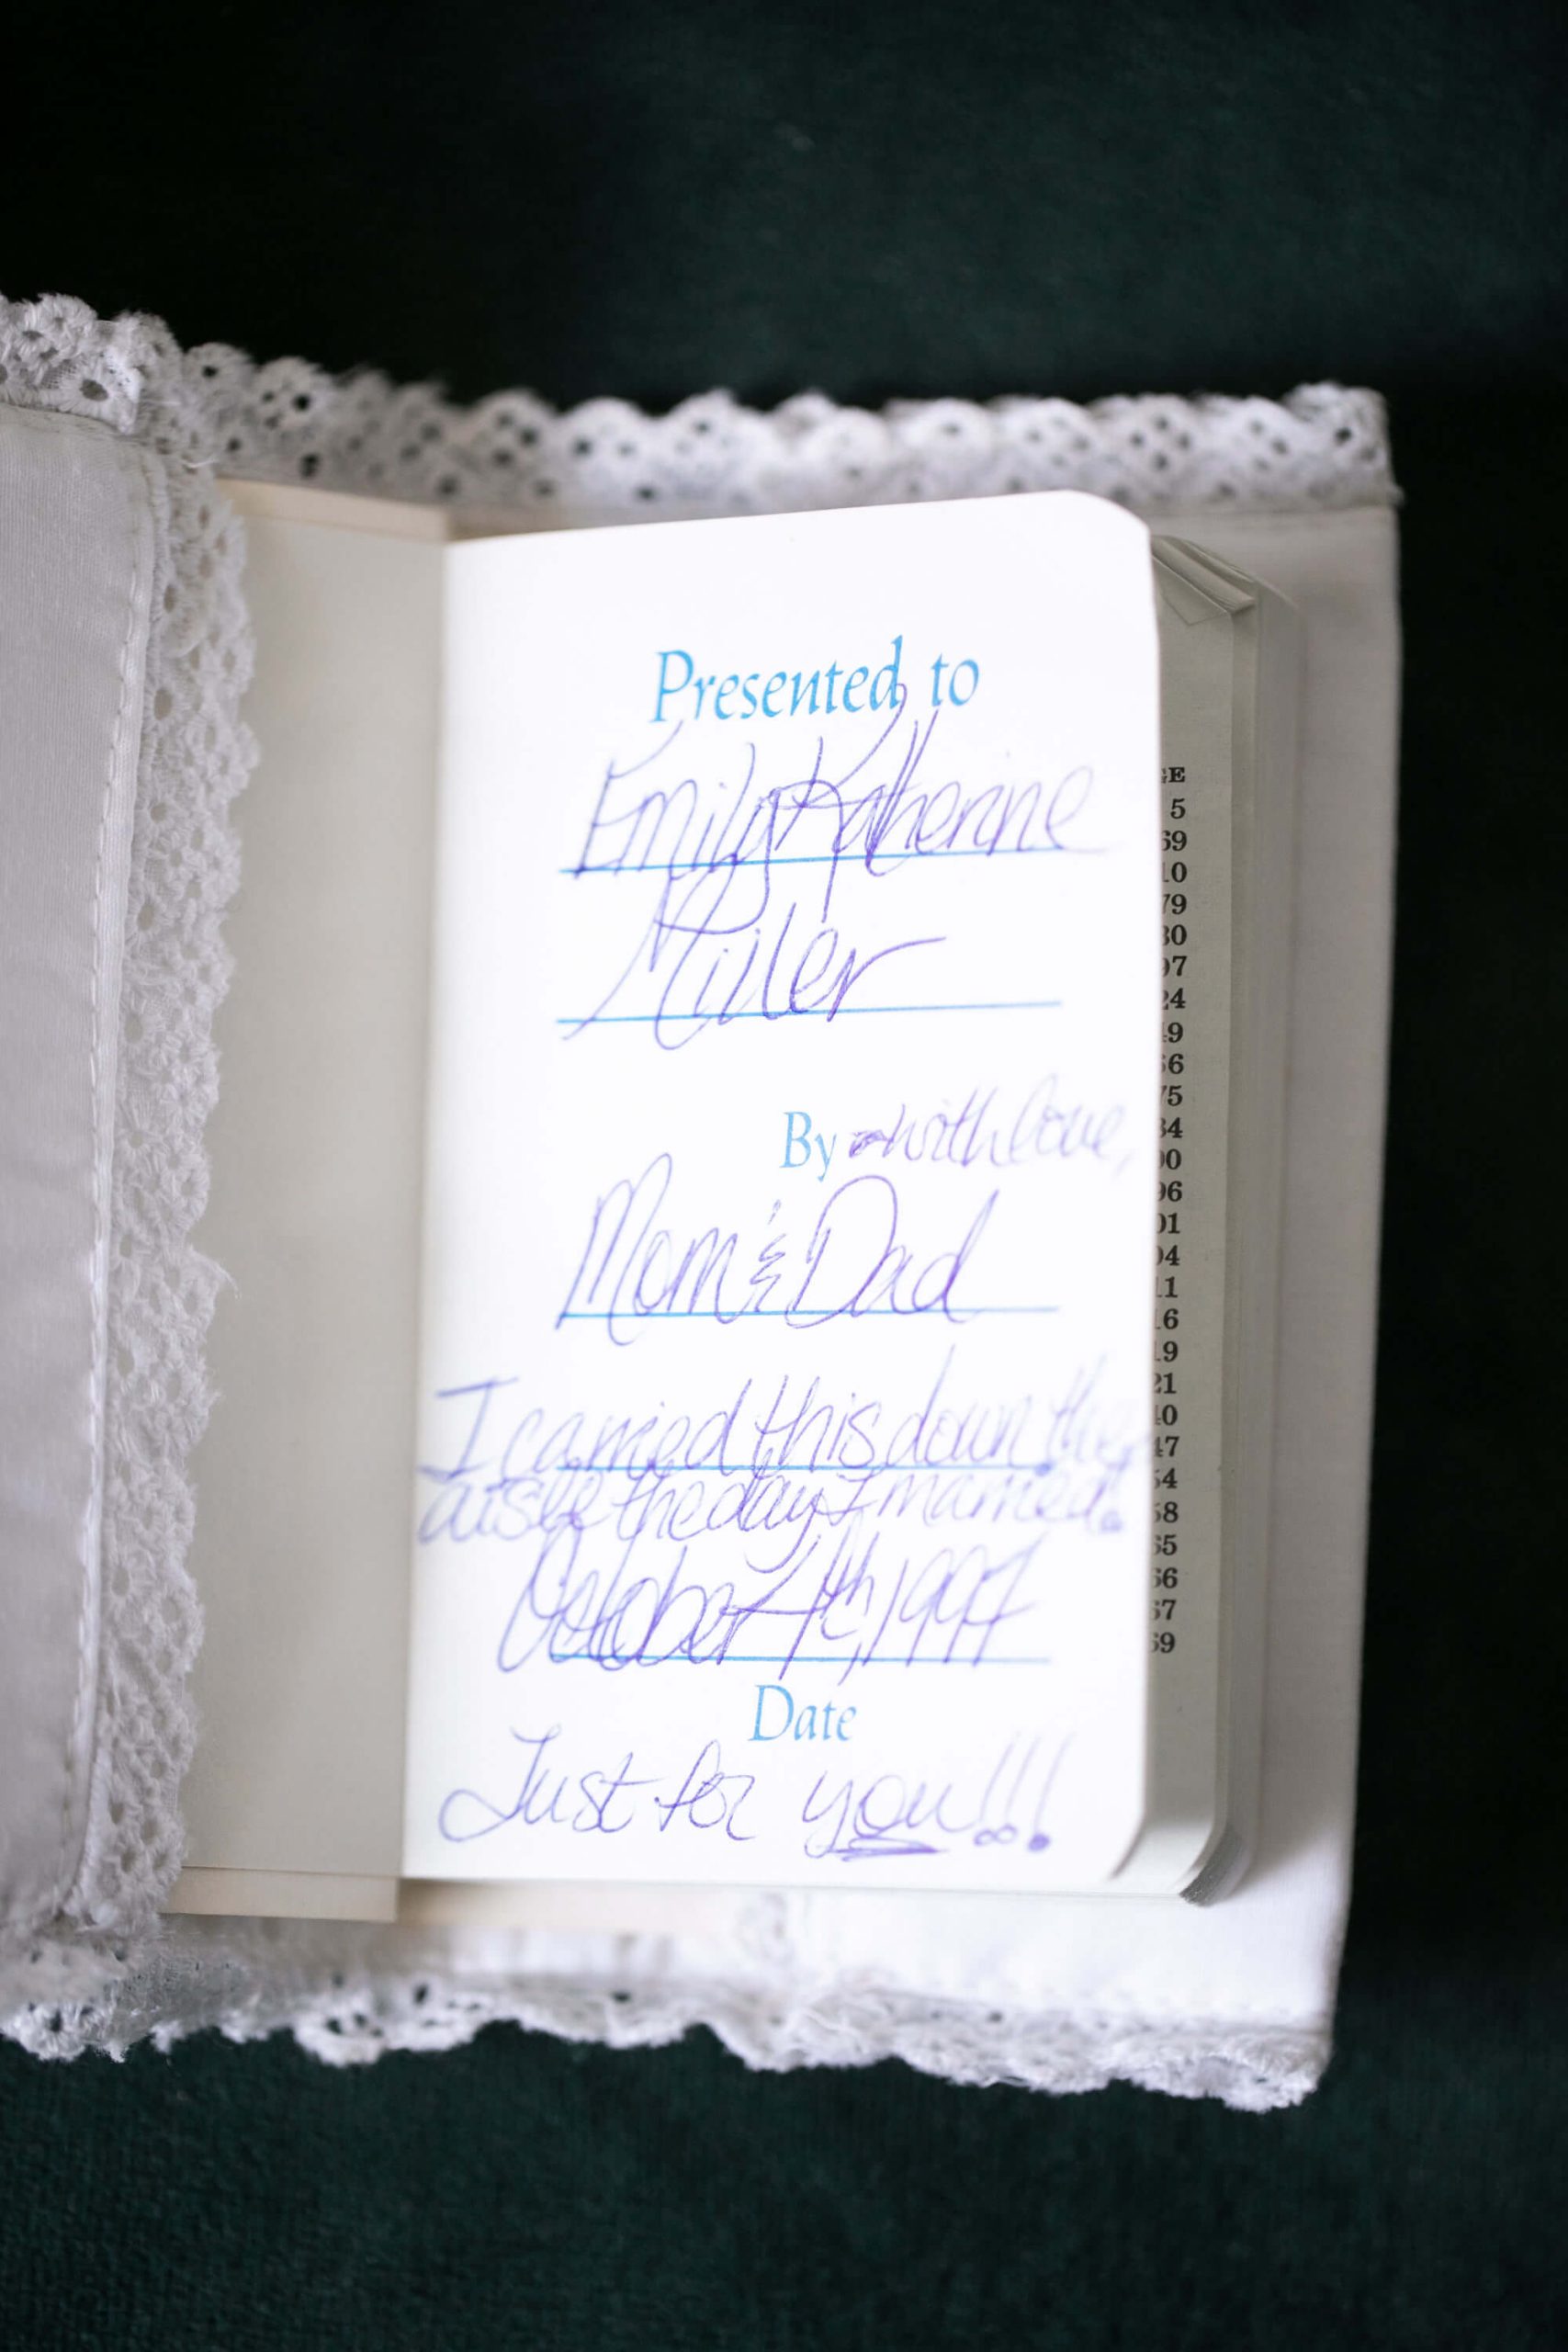 Presented to
Emily Katherine
Miller
By with love,
Mom & Dad
I carried this down the
aisle the day I married.
October 4th, 1997
Date
Just for you!!!
GE
5
69
10
79
30
97
24
49
56
75
84
00
96
01
04
11
16
19
21
40
47
54
58
65
66
67
69